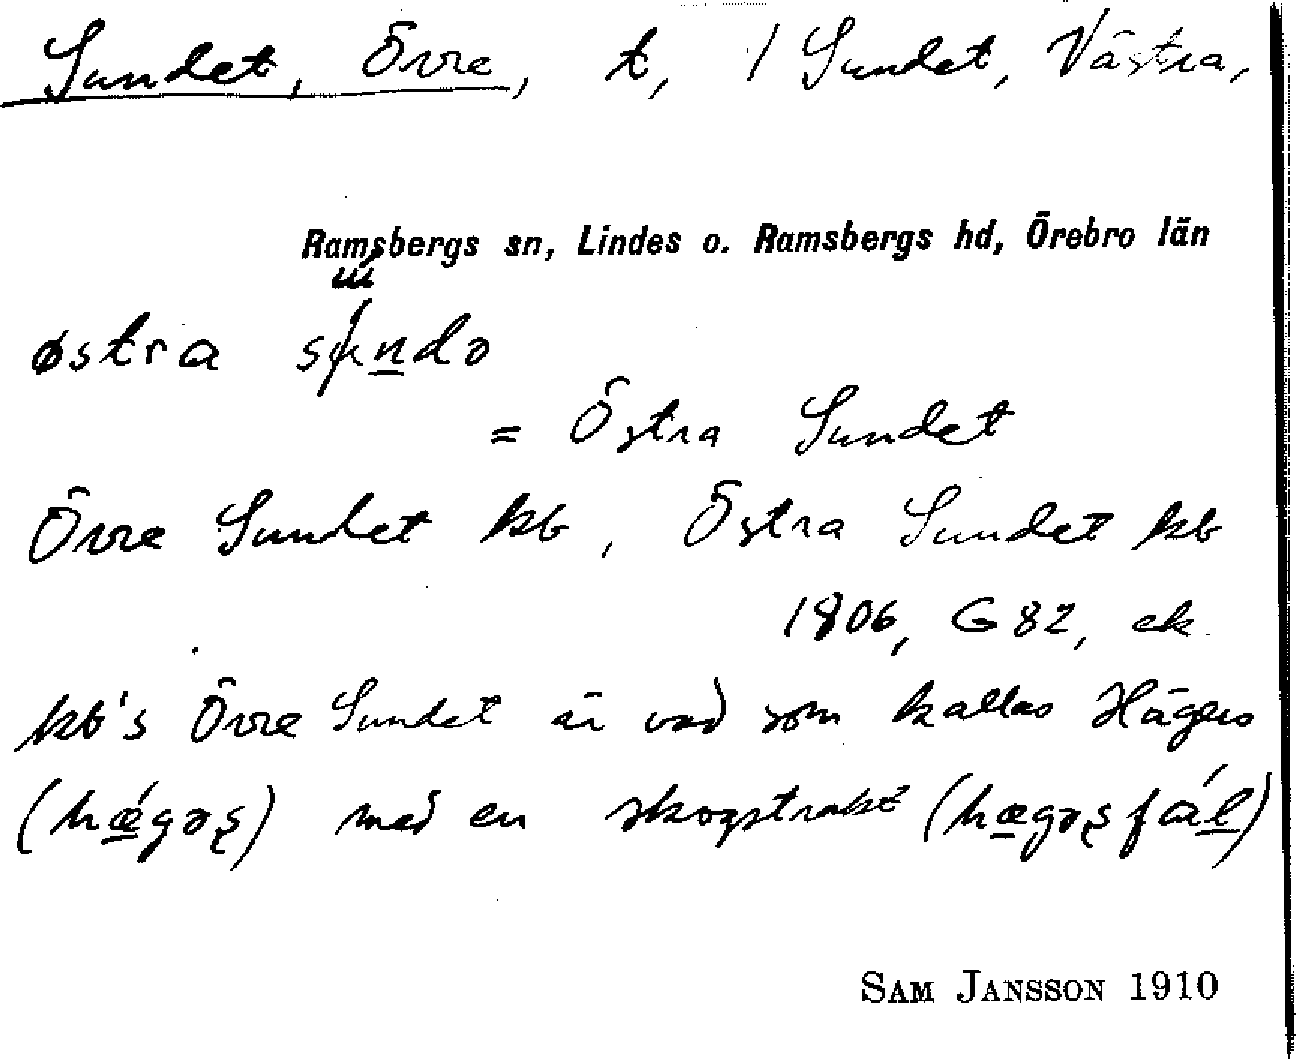 Sundet, Övre, t, / Sundet, Västra,
Ramsbergs sn, Lindes o. Ramsbergs hd, Örebro län
østra sɯ́ndə
= Östra Sundet
Övre Sundet kb, Östra Sundet kb
1806, G 82, ek.
kb's Övre Sundet är vad som kallas Hägers
(hǽgəʂ) med en skogstrakt (hægəʂfál)
SAM JANSSON 1910